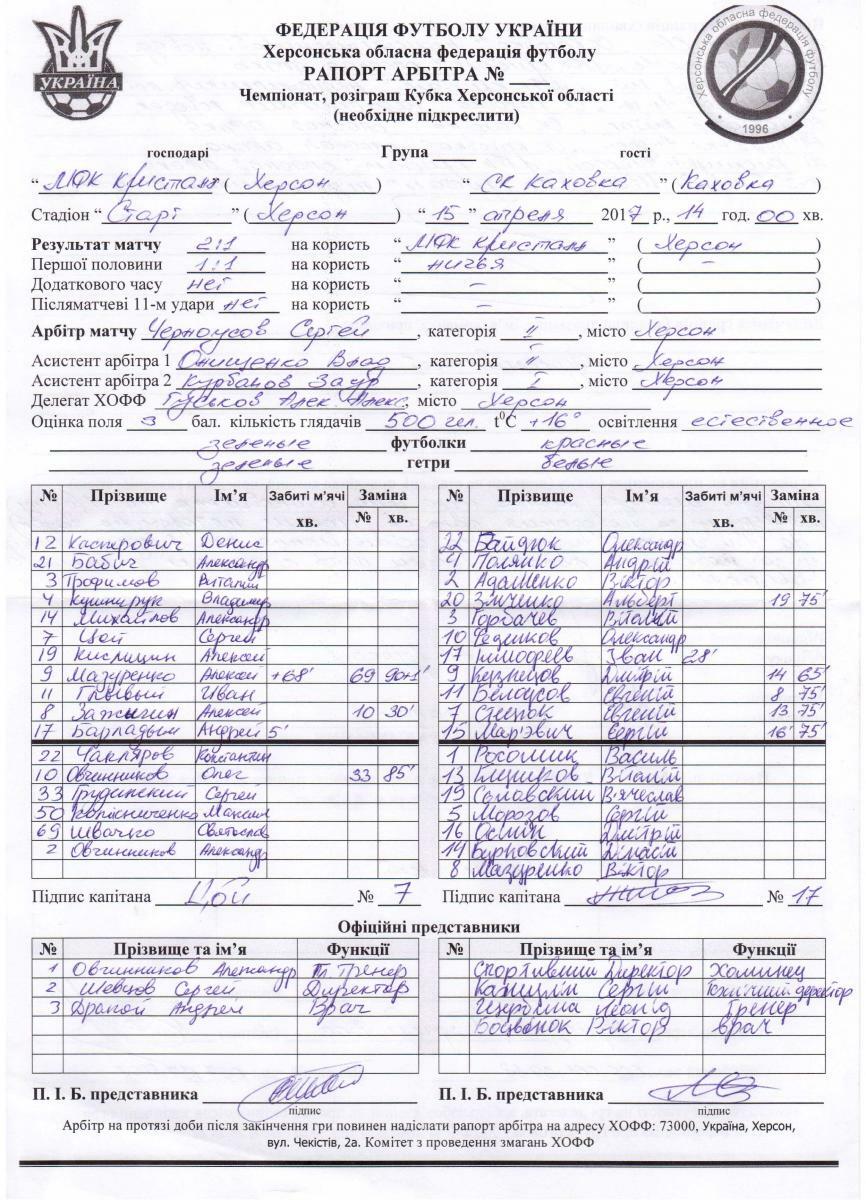 ФЕДЕРАЦІЯ ФУТБОЛУ УКРАЇНИ
Херсонська обласна федерація футболу
РАПОРТ АРБІТРА № ____
Чемпіонат, розіграш Кубка Херсонської області
(необхідне підкреслити)
УКРАЇНА
Херсонська обласна федерація футболу
1996
господарі Група ____ гості
“ МФК Кристалл ” ( Херсон ) “ СК Каховка ” ( Каховка )
Стадіон “ Старт ” ( Херсон ) “ 15 ” апреля 2017 р., 14 год. 00 хв.
Результат матчу 2:1 на користь “ МФК Кристалл ” ( Херсон )
Першої половини 1:1 на користь “ ничья ” ( – )
Додаткового часу нет на користь “ – ” ( )
Післяматчеві 11-м удари нет на користь “ – ” ( )
Арбітр матчу Черноусов Сергей, категорія II, місто Херсон
Асистент арбітра 1 Онищенко Влад, категорія II, місто Херсон
Асистент арбітра 2 Курбанов Заур, категорія I, місто Херсон
Делегат ХОФФ Гуськов Алек. Алекс., місто Херсон
Оцінка поля 3 бал. кількість глядачів 500 чел. t⁰C +16° освітлення естественное
зеленые футболки красные
зеленые гетри белые
№ Прізвище Ім’я Забиті м’ячі хв. Заміна № хв.
12 Касперович Денис
21 Бабич Александр
3 Трофимов Виталий
4 Кушнирук Владимир
14 Михайлов Александр
7 Цой Сергей
19 Кислицин Алексей
9 Мазуренко Алексей +68' 69 90+1'
11 Иван
8 Зажыгин Алексей 10 30'
17 Барладын Андрей 5'
22 Чакляров Константин
10 Овчинников Олег 33 85'
33 Грудинский Сергей
50 Колісниченко Максим
69 Швачко Святослав
2 Овчинников Александр
Підпис капітана Цой № 7
№ Прізвище Ім’я Забиті м’ячі хв. Заміна № хв.
22 Байдюк Олександр
4 Полянко Андрій
2 Адаменко Віктор
20 Зінченко Альберт 19 75'
3 Горбачев Віталий
10 Феденков Олександр
17 Тимофеев Іван 28'
9 Кузнецов Дмитрій 14 65'
11 Белоусов Евгеній 8 75'
7 Стецюк Евгеній 13 75'
15 Мар'эвич Сергій 16' 75'
1 Росомик Василь
13 Віталій
19 Сьловский Вячеслав
5 Морозов Сергій
16 Осипн Дмитрій
14 Бурковский
8 Мазуренко Віктор
Підпис капітана № 17
Офіційні представники
№ Прізвище та ім’я Функції
1 Овчинников Александр Гл Тренер
2 Шевцов Сергей Директор
3 Драпой Андрей Врач
П. І. Б. представника
підпис
№ Прізвище та ім’я Функції
Спортивний Директор Хоминец
Сергій Технічний директор
Леонід Тренер
Боцвонок Віктор врач
П. І. Б. представника
підпис
Арбітр на протязі доби після закінчення гри повинен надіслати рапорт арбітра на адресу ХОФФ: 73000, Україна, Херсон,
вул. Чекістів, 2а. Комітет з проведення змагань ХОФФ